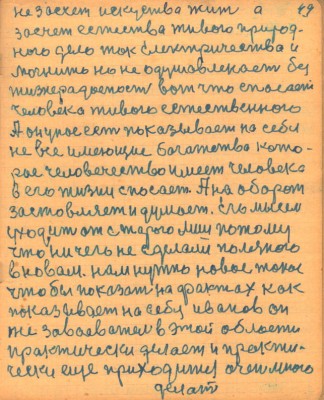 49
не засчет искуства жит а
засчет естества живого природ-
ного дело ток електричества и
могнито но не одушевлекает без
жизнерадосност вот что спасает
человека живого естественного
А он у нос ест показывает на себя
не все имеющие богатства кото-
рое человечество имеет человека
в его жизни спосает. А на оборот
заставляет и думает. Его мысли
уходит от старого мы потому
что ничего не сделали полезного
в новом. нам нужно новое такое
чтобы показат на фактах как
показывает на себе иванов он
же заваеватель в этой области
практически делает и практи-
чески еще приходится очен много
делат